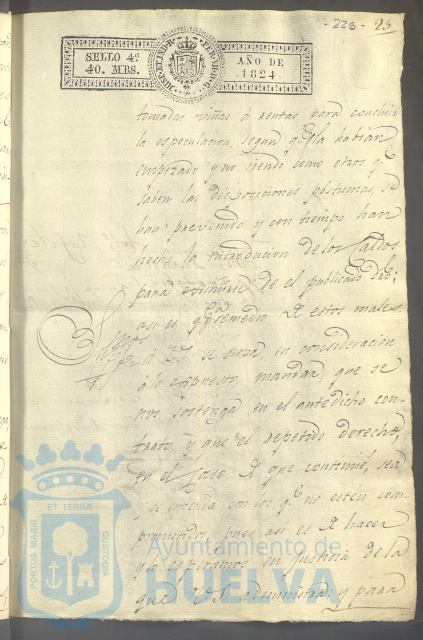 - 226 -
23
SELLO 4º
40. MRS.
AÑO DE
1824.
tomadas viñas á rentas para concluir
la especulacion, segun qe. la habian
empezado y no siendo como otros qe.
saben las disposiciones postumas, se
han prevenido y con tiempo han
hecho la introduccion de los Caldos
para eximirse de el publicado dro;
asi es, qe. pa. remedio de estos males
Suppcos.
á VS. se sirva en consideracion
á lo expuesto, mandar que se
nos sostenga en el antedicho con-
trato, y que el repetido derecho,
en el caso de que continúe, sea
y se entienda con los qe. no esten com-
prometidos, pues asi es de hacer
y lo esperamos en justicia de la
que VS. administra: y para
PORTUS MARIS
ET TERRÆ
CUSTODIA
Ayuntamiento de
HUELVA